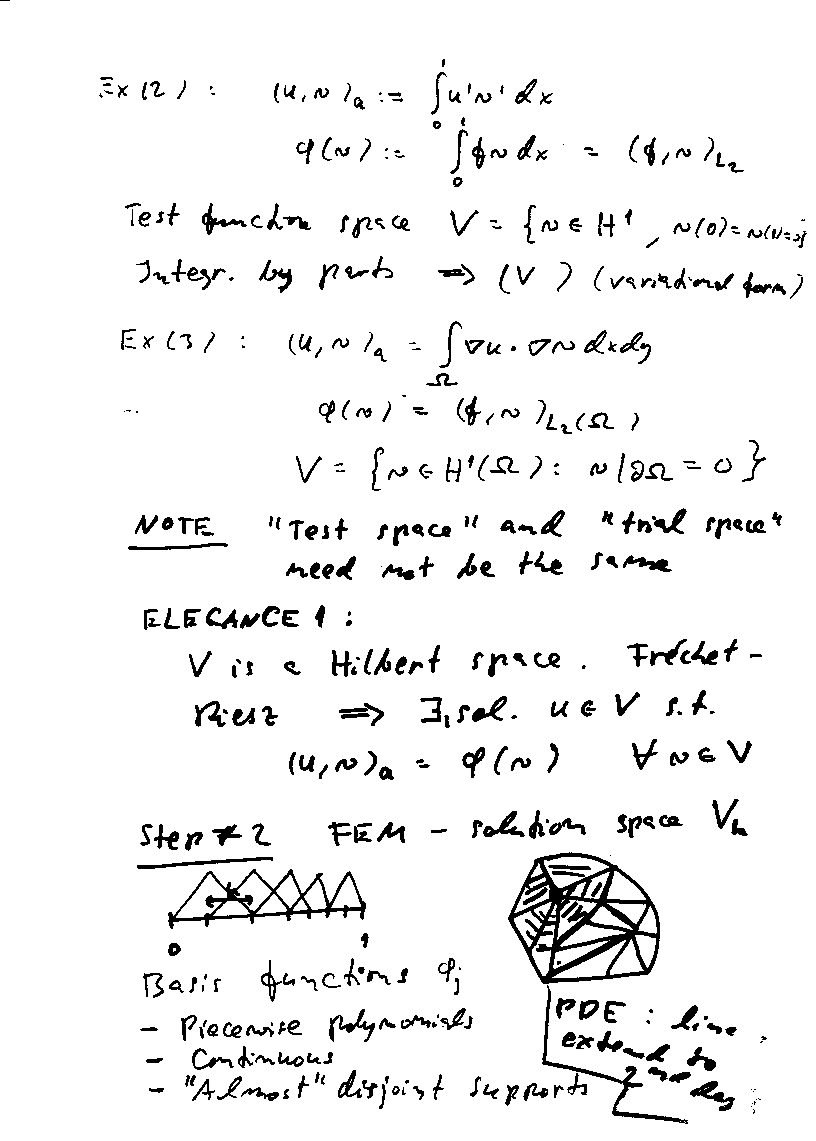 Ex (2) : (u,v)ₐ := ∫₀¹ u'v' dx
φ(v) := ∫₀¹ fv dx = (f,v)_{L₂}
Test function space V = {v ∈ H¹, v(0)=v(1)=0}
Integr. by parts ⇒ (V) (variational form)
Ex (3) : (u,v)ₐ = ∫_Ω ∇u·∇v dxdy
φ(v) = (f,v)_{L₂(Ω)}
V = {v ∈ H¹(Ω): v|∂Ω = 0}
NOTE "Test space" and "trial space"
need not be the same
ELEGANCE 1 :
V is a Hilbert space. Fréchet-
Riesz ⇒ ∃₁ sol. u ∈ V s.t.
(u,v)ₐ = φ(v) ∀ v ∈ V
Step #2 FEM - solution space Vₕ
h
0 1
Basis functions φⱼ
- Piecewise polynomials
- Continuous
- "Almost" disjoint supports
PDE : line
extend to
2nd